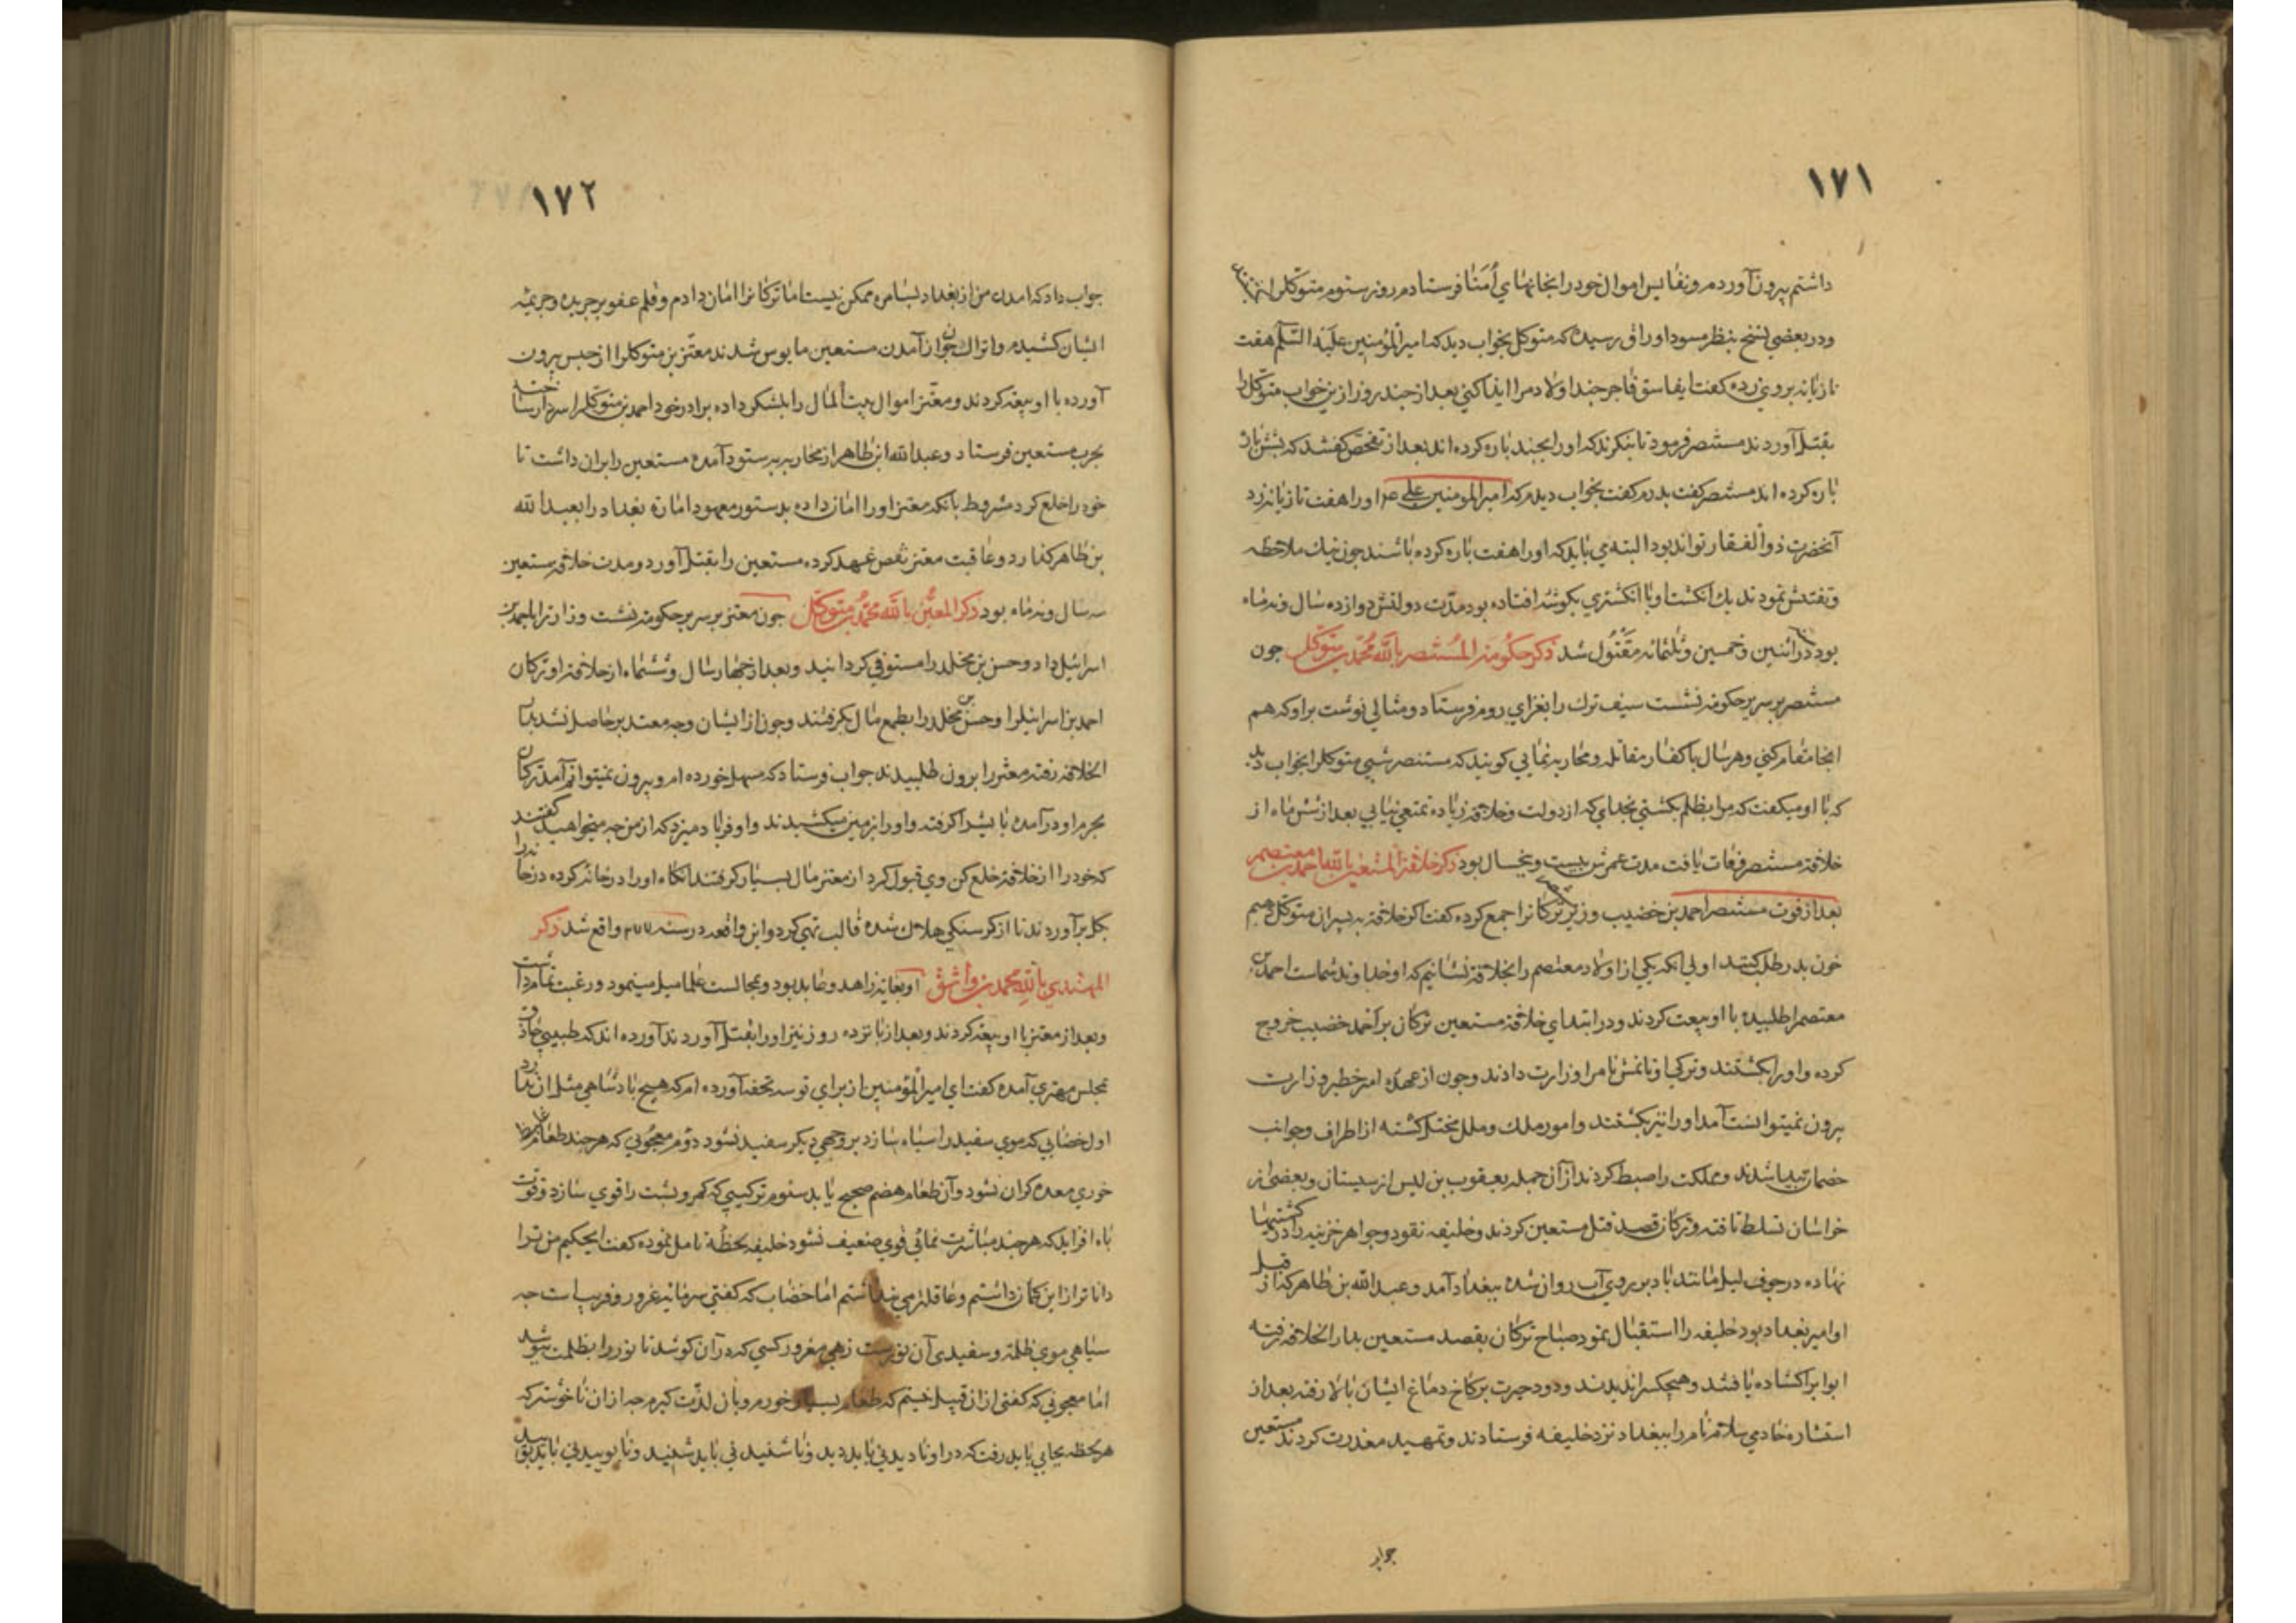 ۱۷۱
داشتم بیرون آوردم و نفایس اموال خود را بخانهای أمنا فرستادم روز ستوم متوکلرا
و در بعضی نسخ بنظر مسود اوراق رسیده که متوکل بخواب دید که امیر المؤمنین علیه السلم هفت
تازیانه بروی زده گفت ایفاسق فاجر چند اولاد مرا ایذا کنی بعد از چند روز از ین خواب متوکل را
بقتل آوردند مستنصر فرمود تا بنکرند که او را بچند پاره کرده اند بعد از تفحص گفتند که بشش پاره
پاره کرده اند مستنصر گفت پدرم گفت بخواب دیدم که امیر المومنین علی او را هفت تازیانه زد
آنحضرت ذو الفقار تواند بود البته می باید که او را هفت پاره کرده باشند چون نیك ملاحظه
و تفتیش نمودند یك انکشت او با انکشتری بکوشه افتاده بود مدت دولتش دوازده سال و نه ماه
بود در اثنین و خمسین و ثلثمائه مقتول شد ذکر حکومة المستنصر بالله محمد بن متوکل چون
مستنصر بر سریر حکومة نشست سیف ترك را بغزای روم فرستاد و مثالی نوشت براو که هم
انجا مقام کنی و هر سال با کفار مقاتله و محاربه نمایی کویند که مستنصر شبی متوکلرا بخواب دید
که با او میکفت که مرا بظلم بکشتی بخدای که از دولت و خلافة زیاده تمتعی نیابی بعد از شش ماه از
خلافة مستنصر وفات یافت مدت عمرش بیست و پنجسال بود ذکر خلافة المستعین بالله احمد بن معتصم
بعد از فوت مستنصر احمد بن خضیب وزیر ترکانرا جمع کرده گفت اکر خلافة به پسران متوکل دهیم
خون پدر طلب کنند اولی انکه یکی از اولاد معتصم را بخلافة نشانیم که او خداوند شماست احمد بن
معتصمرا طلبیده با او بیعت کردند و در ابتدای خلافة مستعین ترکان بر احمد خضیب خروج
کرده و او را بکشتند و ترکی اوتامش نام را وزارت دادند و چون از عهدۀ امر خطیر وزارت
بیرون نمیتوانست آمد او را نیز بکشتند و امور ملك و ملل مختل کشته از اطراف و جوانب
خصمان پیدا شدند و مملکت را ضبط کردند از آن جمله یعقوب بن لیس از سیستان و بعضی از
خراسان تسلط یافته و ترکان قصد قتل مستعین کردند و خلیفه نقود و جواهر خزینه را در کشتیها
نهاده در جوف لیل مانند باد بر روی آب روان شده ببغداد آمد و عبد الله بن طاهر که از قبل
او امیر بغداد بود خلیفه را استقبال نمود صباح ترکان بقصد مستعین بدار الخلافة رفته
ابواب را کشاده یافتند و هیچکسرا ندیدند و دود حیرت بر کاخ دماغ ایشان بالا رفته بعد از
استشاره خادمی سلام نام را ببغداد نزد خلیفه فرستادند و تمهید معذرت کردند مستعین
جواب
۱۷۲
جواب داد که امدن من از بغداد بسامره ممکن نیست اما ترکانرا امان دادم و قلم عفو بر جریده و جریمۀ
ایشان کشیدم و اتراك چون از آمدن مستعین مایوس شدند معتز بن متوکلرا از حبس بیرون
آورده با او بیعة کردند و معتز اموال بیت المال را بلشکر داده برادر خود احمد بن متوکلرا سردار ساخته
بحرب مستعین فرستاد و عبد الله ابن طاهر از محاربه بستوه آمده مستعین را بران داشت تا
خود را خلع کرد مشروط بآنکه معتز او را امان داده بدستور معهود امارة بغداد را بعبد الله
بن طاهر کذارد و عاقبت معتز نقض عهد کرده مستعین را بقتل آورد و مدت خلافة مستعین
سه سال و نه ماه بود ذکر المعتز بالله محمد بن متوکل چون معتز بر سریر حکومة نشست وزارترا باحمد بن
اسرائیل داد و حسن بن مخلد را مستوفی کردانید و بعد از چهار سال و ششماه از خلافة او ترکان
احمد بن اسرائیلرا و حسن بن مخلد را بطمع مال بکرفتند و چون از ایشان وجه معتد به حاصل نشد بدار
الخلافة رفته معتز را برون طلبیدند جواب فرستاد که مسهل خورده ام و بیرون نمیتوانم آمد ترکان
بحرم او در آمده پایش را کرفته و او را بر زمین میکشیدند و او فریاد میزد که از من چه میخواهید گفتند
که خود را از خلافة خلع کن وی قبول کرد از معتز مال بسیار کرفتند انکاه او را در خانه کرده در خانه را
بکل بر آوردند تا از کرسنکی هلاك شده قالب تهی کرد و این واقعه در سنه واقع شد ذکر
المهتدی بالله محمد بن واثق او بغایة زاهد و عابد بود و بمجالست علما میل مینمود و رغبت تمام داشت
و بعد از معتز با او بیعة کردند و بعد از پانزده روز نیز او را بقتل آوردند آورده اند که طبیبی حاذق
بمجلس مهتدی آمده گفت ای امیر المؤمنین از برای تو سه تحفه آورده ام که هیچ پادشاهی مثل ان ندارد
اول خضابی که موی سفید را سیاه سازد بروجهی دیکر سفید نشود دوم معجونی که هر چند طعام
خوری معده کران نشود و آن طعام هضم صحیح یابد ستوم ترکیبی که کمر و پشت را قوی سازد و قوت
باه افزاید که هر چند مباشرت نمائی قوی ضعیف نشود خلیفه لحظۀ تامل نموده گفت ایحکیم من ترا
داناتر از این کمان داشتم و عاقلتر می پنداشتم اما خضاب که گفتی سرمایۀ غرور و فریب است چه
سیاهی موی ظلمة و سفیدی آن نورست زهی مغرور کسی که در آن کوشد تا نور را بظلمت بپوشد
اما معجونی که گفتی از ان قبیل نیستم که طعام بسیار خورم و بان لذت کیرم چه از ان ناخوشتر که
هر لحظه بجایی باید رفت که در او نا دیدنی باید دید و نا شنیدنی باید شنید و نا بوییدنی باید بویید